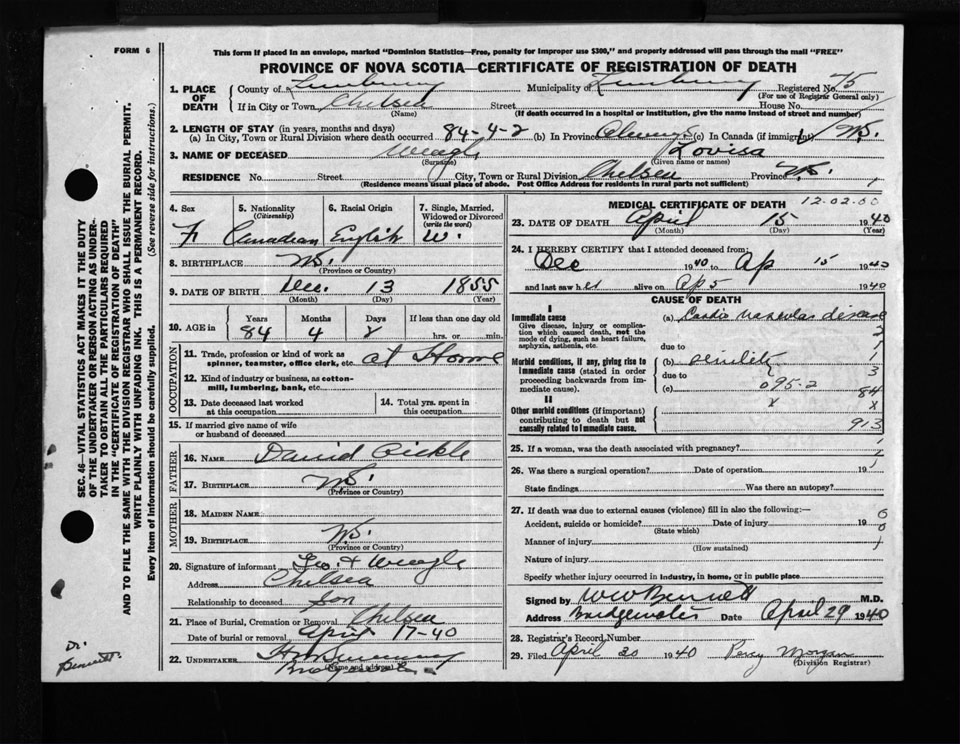 FORM 6
This form if placed in an envelope, marked "Dominion Statistics—Free, penalty for improper use $300," and properly addressed will pass through the mail "FREE"
PROVINCE OF NOVA SCOTIA—CERTIFICATE OF REGISTRATION OF DEATH
SEC. 46—VITAL STATISTICS ACT MAKES IT THE DUTY
OF THE UNDERTAKER OR PERSON ACTING AS UNDER-
TAKER TO OBTAIN ALL THE PARTICULARS REQUIRED
IN THE "CERTIFICATE OF REGISTRATION OF DEATH"
AND TO FILE THE SAME WITH THE DIVISION REGISTRAR WHO SHALL ISSUE THE BURIAL PERMIT.
WRITE PLAINLY WITH UNFADING INK. THIS IS A PERMANENT RECORD.
Every item of information should be carefully supplied. (See reverse side for instructions.)
1. PLACE OF DEATH
County of Lunenburg Municipality of Lunenburg Registered No. 75
(For use of Registrar General only)
If in City or Town Chelsea Street House No.
(Name) (If death occurred in a hospital or institution, give the name instead of street and number)
2. LENGTH OF STAY (in years, months and days)
(a) In City, Town or Rural Division where death occurred 84-4-2 (b) In Province Always (c) In Canada (if immigrant) N.S.
3. NAME OF DECEASED Weagle Lovisa
(Surname) (Given name or names)
RESIDENCE No. Street City, Town or Rural Division Chelsea Province N.S.
(Residence means usual place of abode. Post Office Address for residents in rural parts not sufficient)
4. Sex
F
5. Nationality
(Citizenship)
Canadian
6. Racial Origin
English
7. Single, Married,
Widowed or Divorced
(write the word)
W.
8. BIRTHPLACE N.S.
(Province or Country)
9. DATE OF BIRTH Dec. 13 1855
(Month) (Day) (Year)
10. AGE in Years Months Days If less than one day
84 4 2 hrs. or min.
OCCUPATION
11. Trade, profession or kind of work as
spinner, teamster, office clerk, etc. at Home
12. Kind of industry or business, as cotton-
mill, lumbering, bank, etc.
13. Date deceased last worked
at this occupation
14. Total yrs. spent in
this occupation
15. If married give name of wife
or husband of deceased
FATHER
16. NAME David Pickle
17. BIRTHPLACE N.S.
(Province or Country)
MOTHER
18. MAIDEN NAME
19. BIRTHPLACE N.S.
(Province or Country)
20. Signature of informant Geo. F Weagle
Address Chelsea
Relationship to deceased Son
21. Place of Burial, Cremation or Removal Chelsea
Date of burial or removal April 17-40
22. UNDERTAKER
(Name and address)
Dr.
Bennett.
MEDICAL CERTIFICATE OF DEATH 12.02.00
23. DATE OF DEATH April 15 1940
(Month) (Day) (Year)
24. I HEREBY CERTIFY that I attended deceased from:
Dec 1940 to Ap 15 1940
and last saw her alive on Ap 5 1940
CAUSE OF DEATH
I
Immediate cause
Give disease, injury or complica-
tion which caused death, not the
mode of dying, such as heart failure,
asphyxia, asthenia, etc.
(a) Cardio vascular disease
due to
Morbid conditions, if any, giving rise to
immediate cause (stated in order
proceeding backwards from im-
mediate cause).
(b) senility
due to
(c) 095-2
II
Other morbid conditions (if important)
contributing to death but not
causally related to immediate cause.
2
1
1
3
84
x
913
25. If a woman, was the death associated with pregnancy?
26. Was there a surgical operation? Date of operation 19
State findings Was there an autopsy?
27. If death was due to external causes (violence) fill in also the following:—
Accident, suicide or homicide? Date of injury 19
(State which)
Manner of injury
(How sustained)
Nature of injury
Specify whether injury occurred in industry, in home, or in public place
Signed by W W Bennett M.D.
Address Bridgewater Date April 29 1940
28. Registrar's Record Number
29. Filed April 30 1940 Percy Morgan
(Division Registrar)